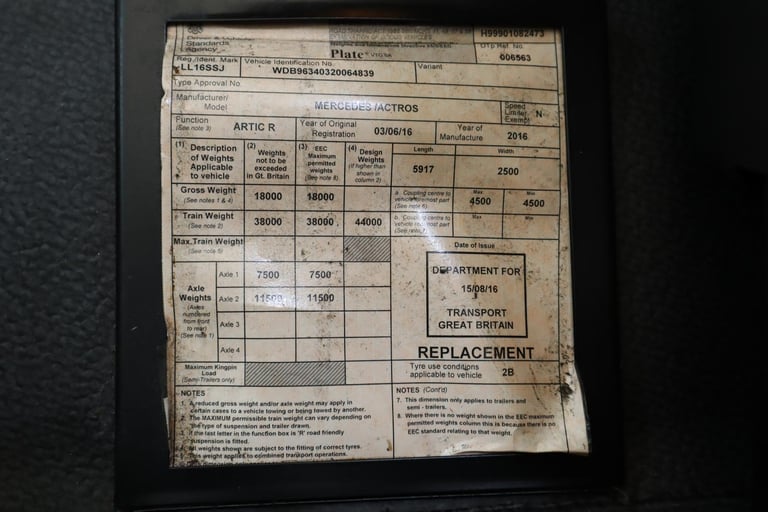 H99901082473
Standards
Agency
Plate
DTp Ref. No.
006563
Reg./Ident. Mark
LL16SSJ
Vehicle Identification No
WDB96340320064839
Variant
Type Approval No
Manufacturer/
Model
MERCEDES /ACTROS
Speed
Limiter
Exempt
N
Function
(See note 3)
ARTIC R
Year of Original
Registration
03/06/16
Year of
Manufacture
2016
(1) Description
of Weights
Applicable
to vehicle
(2) Weights
not to be
exceeded
in Gt. Britain
(3) EEC
Maximum
permitted
weights
(See note 8)
(4) Design
Weights
(if higher than
shown in
column 2)
Length
5917
Width
2500
Gross Weight
(See notes 1 & 4)
18000
18000
a Coupling centre to
vehicle foremost part
(See note 6)
Max
4500
Min
4500
Train Weight
(See note 2)
38000
38000
44000
b. Coupling centre to
vehicle rearmost part
(See note 7)
Max
Min
Max.Train Weight
(See note 5)
Date of Issue
Axle
Weights
(Axles
numbered
from front
to rear)
(See note 1)
Axle 1
7500
7500
Axle 2
11500
11500
Axle 3
Axle 4
DEPARTMENT FOR
15/08/16
TRANSPORT
GREAT BRITAIN
REPLACEMENT
Maximum Kingpin
Load
(Semi-Trailers only)
Tyre use conditions
applicable to vehicle
2B
NOTES
1. A reduced gross weight and/or axle weight may apply in
certain cases to a vehicle towing or being towed by another.
The MAXIMUM permissible train weight can vary depending on
the type of suspension and trailer drawn.
If the last letter in the function box is 'R' road friendly
suspension is fitted.
All weights shown are subject to the fitting of correct tyres.
This weight applies to combined transport operations.
NOTES (Cont'd)
7. This dimension only applies to trailers and
semi - trailers.
8. Where there is no weight shown in the EEC maximum
permitted weights column this is because there is no
EEC standard relating to that weight.